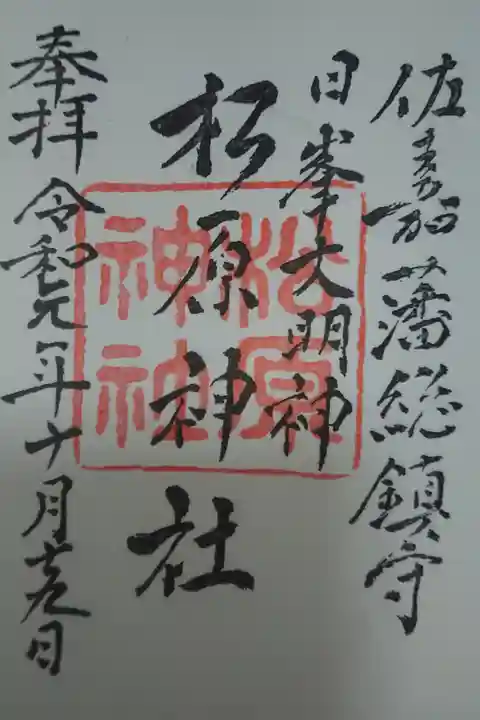 佐嘉藩総鎮守
日峯大明神
松原神社
奉拝 令和元年十月十九日
松原
神社